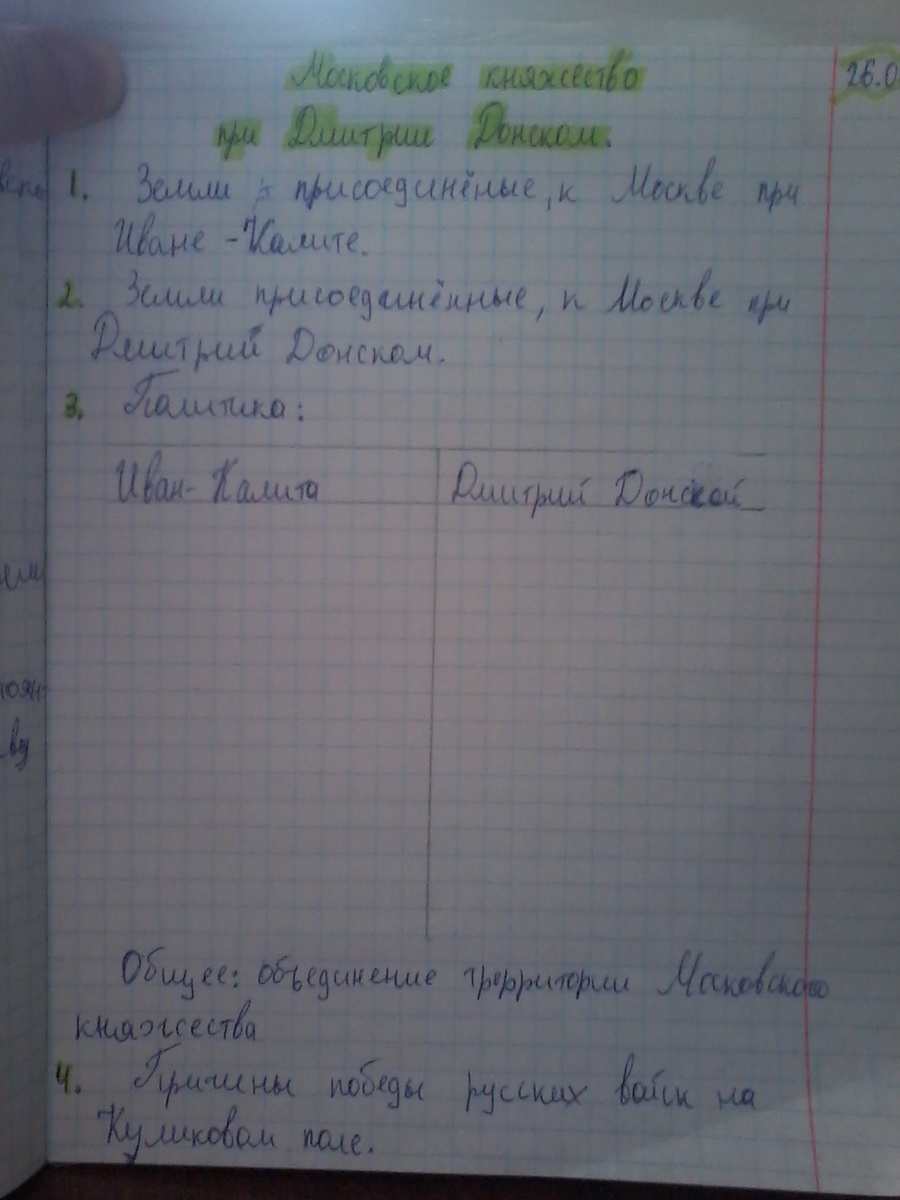 Московское княжество
при Дмитрии Донском.
26.0
1. Земли присоединёные, к Москве при
Иване-Калите.
2. Земли присоединённые, к Москве при
Дмитрий Донском.
3. Политика:
Иван-Калита
Дмитрий Донской
Общее: объединение территории Московского
княжества
4. Причины победы русских войск на
Куликовом поле.